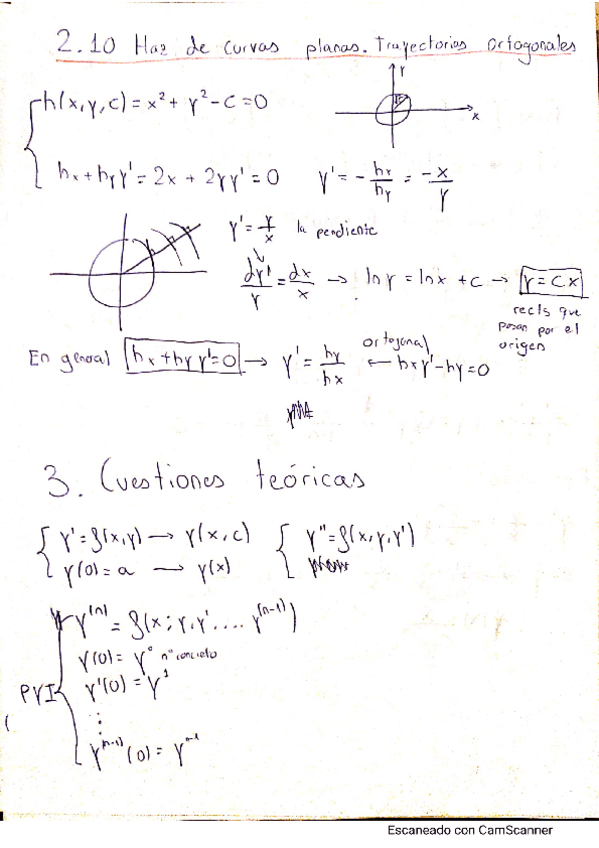 2.10 Haz de curvas planas. Trayectorias ortogonales
h(x,y,c) = x² + y² - c = 0
y
x
hx + hy y' = 2x + 2yy' = 0    y' = - hx/hy = -x/y
y' = y/x la pendiente
dy/y = dx/x → ln y = ln x + c → y = cx
rects que
pasan por el
origen
En general hx + hy y' = 0 → y' = hy/hx ortogonal ← hx y' - hy = 0
3. Cuestiones teóricas
y' = f(x,y) → y(x,c)    y'' = f(x,y,y')
y(0) = a → y(x)
y^(n) = f(x; y, y' .... y^(n-1))
y(0) = y° nº concreto
PVI y'(0) = y¹
⋮
y^(n-1) (0) = y^n-1
Escaneado con CamScanner